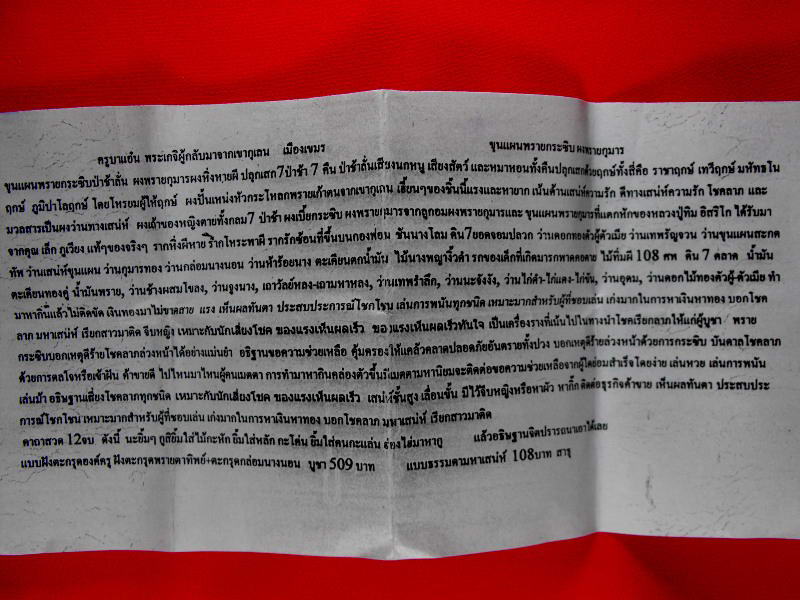 ครูบาแฮ๋น พระเกจิผู้กลับมาจากเขากูเลน เมืองเขมร ขุนแผนพรายกระซิบ ผงพรายกุมาร
ขุนแผนพรายกระซิบป่าช้าลั่น ผงพรายกุมารผงหิ่งหายผี ปลุกเสก7ป่าช้า 7 คืน ป่าช้าลั่นเสียงนกหนู เสียงสัตว์ และหมาหอนทั้งคืนปลุกเสกด้วยฤกษ์ทั้งสี่คือ ราชาฤกษ์ เทวีฤกษ์ มหัทธโน
ฤกษ์ ภูมิปาโลฤกษ์ โดยโหรยมผู้ให้ฤกษ์ ผงปั้นแหน่งหัวกระโหลกพรายเก้าตนจากเขากูเลน เฮี้ยนๆของชิ้นนี้แรงและหายาก เน้นด้านเสน่ห์ความรัก ดีทางเสน่ห์ความรัก โชคลาภ และ
มวลสารเป็นผงว่านทางเสน่ห์ ผงเถ้าของหญิงตายทั้งกลม7 ป่าช้า ผงเบี้ยกระซิบ ผงพรายกุมารจากลูกอมผงพรายกุมารและ ขุนแผนพรายกุมารที่แตกหักของหลวงปู่ทิม อิสริโก ได้รับมา
จากคุณ เล็ก ภูเวียง แท้ๆของจริงๆ รากหิ่งผีหาย ริ้วโหระพาผี รากรักซ้อนที่ขึ้นบนกองฟอน ชันนางโลม ดิน7ยอดจอมปลวก ว่านดอกทองตัวผู้ตัวเมีย ว่านเทพรัญจวน ว่านขุนแผนสะกด
ทัพ ว่านเสน่ห์ขุนแผน ว่านกุมารทอง ว่านกล่อมนางนอน ว่านห้าร้อยนาง ตะเคียนตกน้ำมัน ไม้นางพญางิ้วดำ รกของเด็กที่เกิดมารกพาดคอตาย ไม้หิ้มผี 108 ศพ ดิน 7 ตลาด น้ำมัน
ตะเคียนทองคู่ น้ำมันพราย, ว่านช้างผสมโขลง, ว่านจูงนาง, เถาวัลย์หลง-เถามหาหลง, ว่านเทพรำลึก, ว่านนะจังงัง, ว่านไก่ดำ-ไก่แดง-ไก่ขัน, ว่านอุดม, ว่านดอกไม้ทองตัวผู้-ตัวเมีย ทำ
มาหากินแล้วไม่ติดขัด เงินทองมาไม่ขาดสาย แรง เห็นผลทันตา ประสบประการณ์โชกโชน เล่นการพนันทุกชนิด เหมาะมากสำหรับผู้ที่ชอบเล่น เก่งมากในการหาเงินหาทอง บอกโชค
ลาภ มหาเสน่ห์ เรียกสาวมาติด จีบหญิง เหมาะกับนักเสี่ยงโชค ของแรงเห็นผลเร็ว ของแรงเห็นผลเร็วทันใจ เป็นเครื่องรางที่เน้นไปในทางนำโชคเรียกลาภให้แก่ผู้บูชา/ พราย
กระซิบบอกเหตุดีร้ายโชคลาภล่วงหน้าได้อย่างแม่นยำ อธิฐานขอความช่วยเหลือ คุ้มครองให้แคล้วคลาดปลอดภัยอันตรายทั้งปวง บอกเหตุดีร้ายล่วงหน้าด้วยการกระซิบ บันดาลโชคลาภ
ด้วยการดลใจหรือเข้าฝัน ค้าขายดี ไปไหนมาไหนผู้คนเมตตา การทำมาหากินคล่องตัวขึ้นมีเมตตามหานิยมจะติดต่อขอความช่วยเหลือจากผู้ใดย่อมสำเร็จโดยง่าย เล่นหวย เล่นการพนัน
เล่นม้า อธิษฐานเสี่ยงโชคลาภทุกชนิด เหมาะกับนักเสี่ยงโชค ของแรงเห็นผลเร็ว เสน่ห์ชั้นสูง เลื่อนขั้น มีไว้จีบหญิงหรือหาผัว หากิ๊ก ติดต่อธุรกิจค้าขาย เห็นผลทันตา ประสบประ
การณ์โชกโชน เหมาะมากสำหรับผู้ที่ชอบเล่น เก่งมากในการหาเงินหาทอง บอกโชคลาภ มหาเสน่ห์ เรียกสาวมาติด
คาถาสวด 12จบ ดังนี้ นะยิ้มๆ กูสิยิ้มใส่ไม้กะหัก ยิ้มใส่หลัก กะโค่น ยิ้มใส่คนกะแล่น มาหากู แล้วอธิษฐานจิตปรารถนาเอาได้เลย
แบบฝังตะกรุดองค์ครู ฝังตะกรุดพรายตาทิพย์+ตะกรุดกล่อมนางนอน บูชา 509 บาท แบบธรรมดามหาเสน่ห์ 108บาท สาธุ